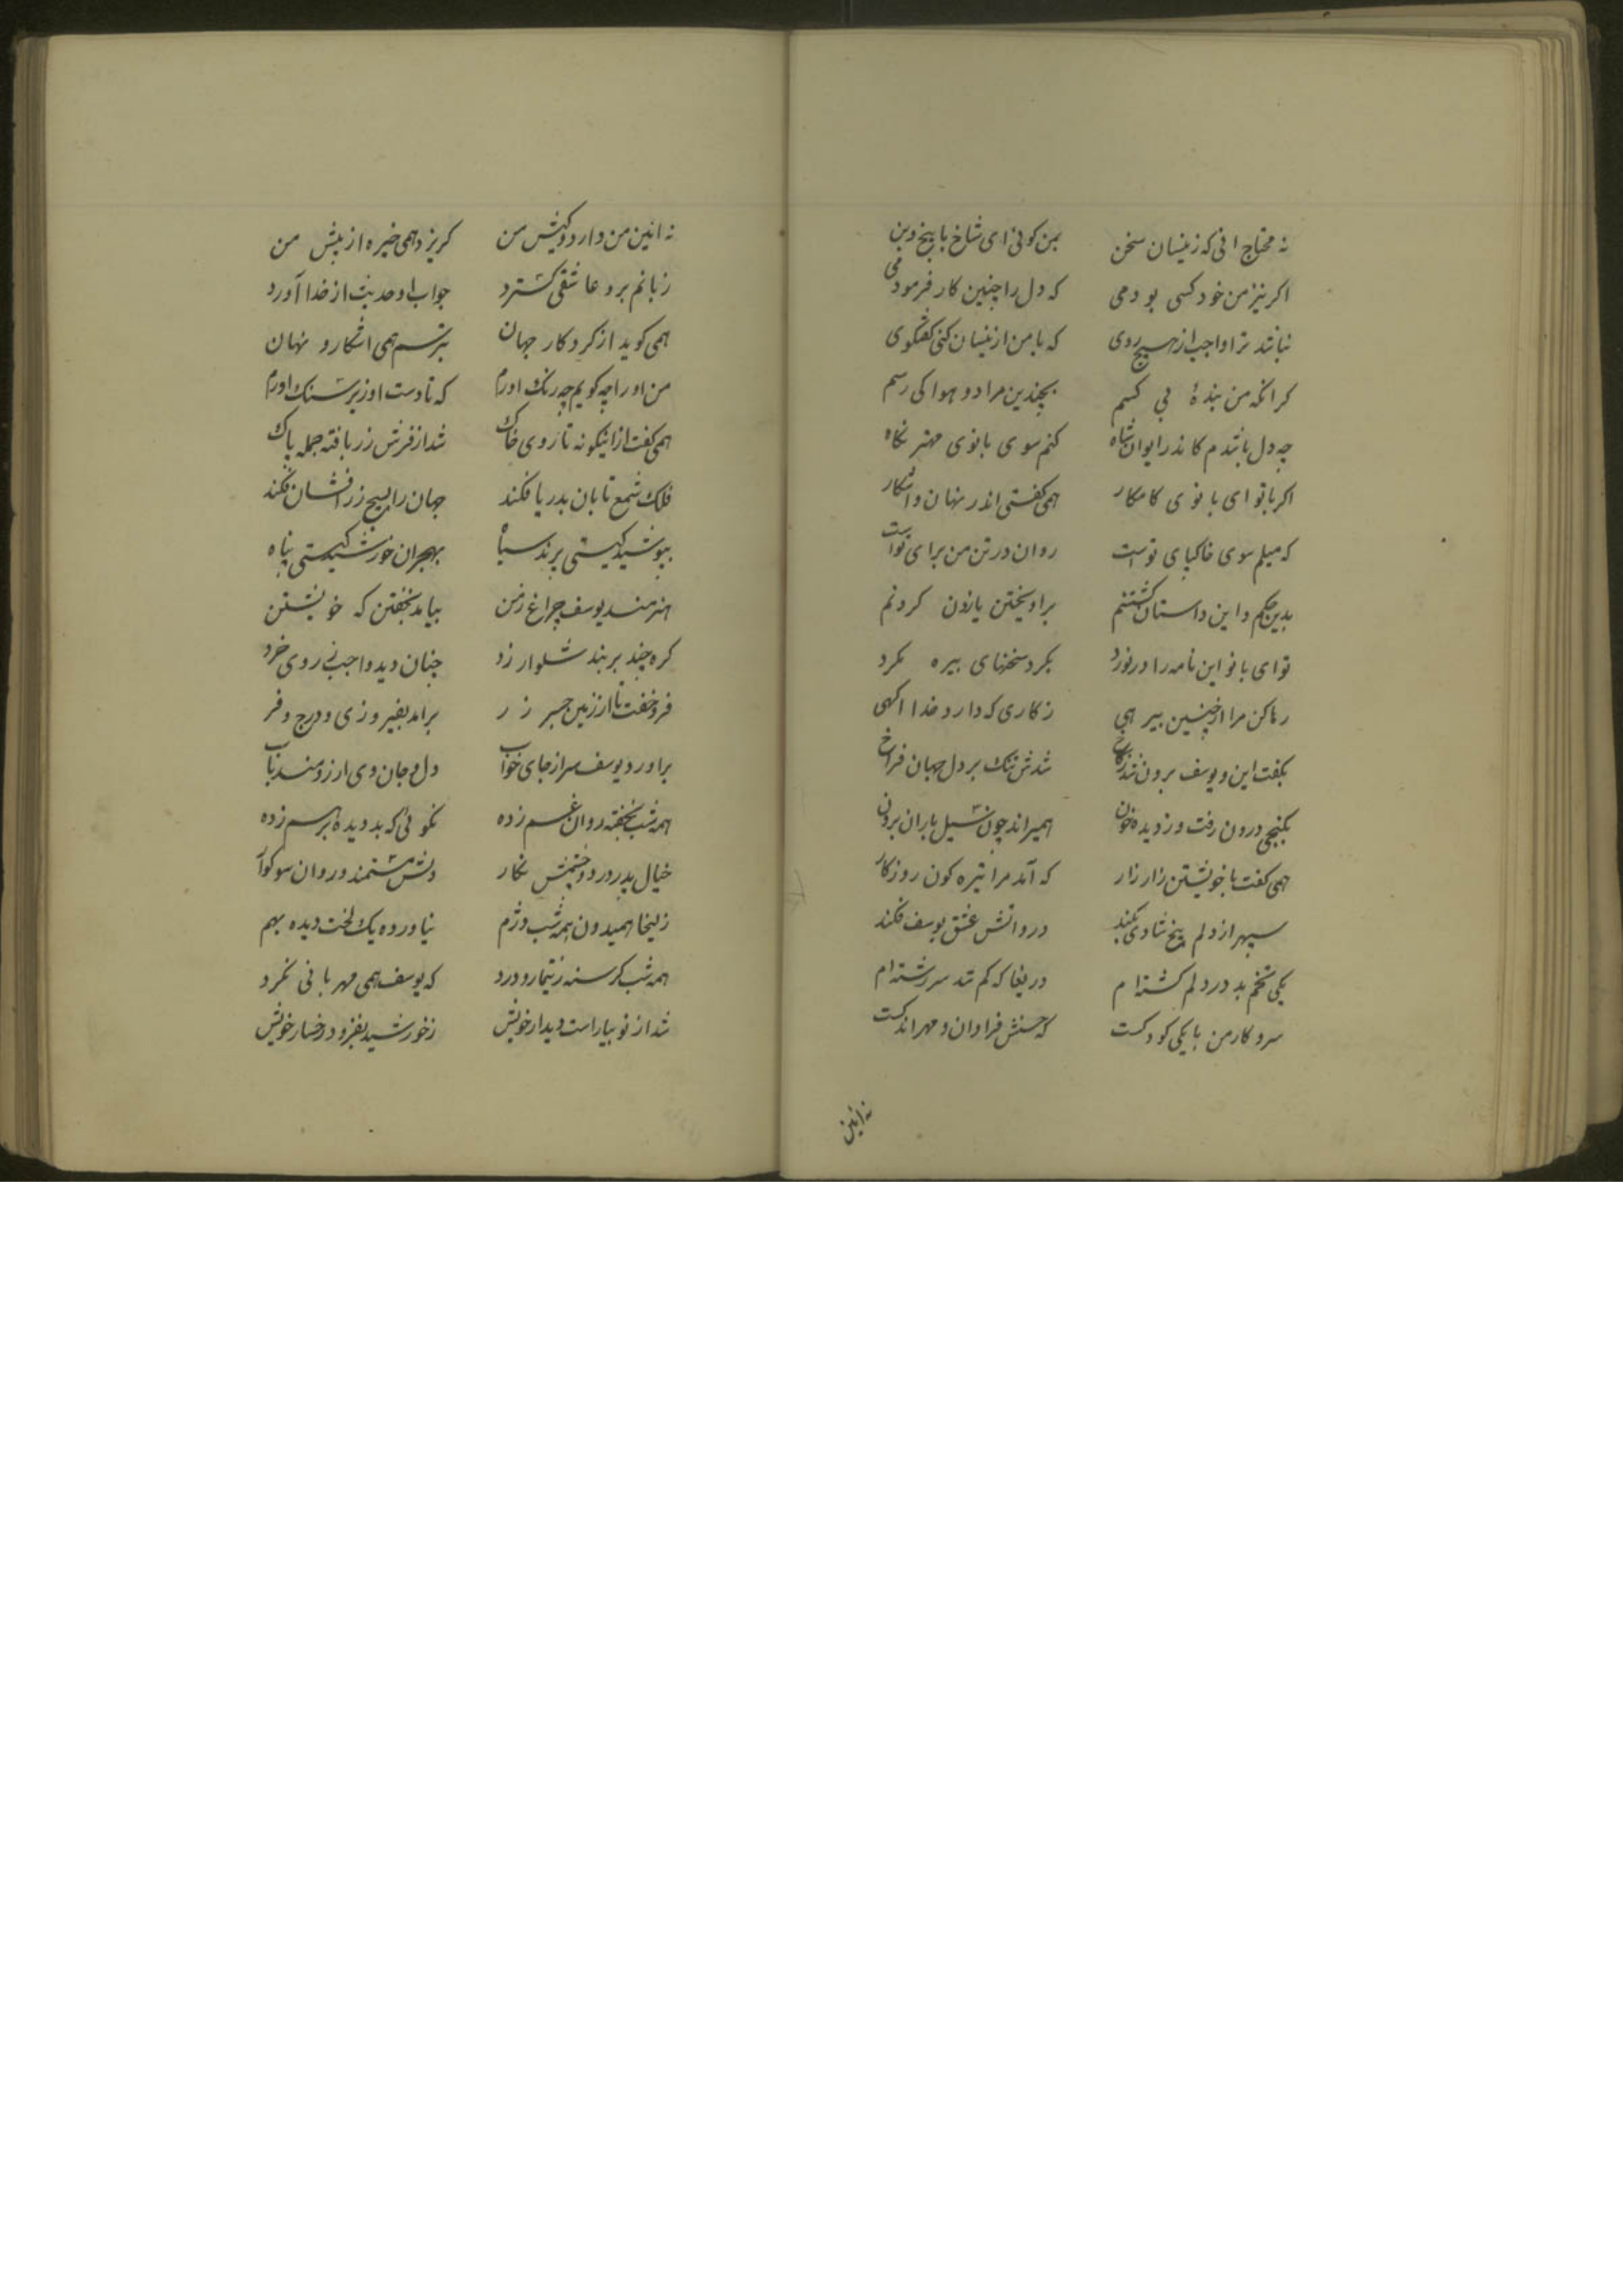 نه محتاج انی که زینسان سخن بمن کوئی ای شاخ با بیخ وبن
اکر نیز من خود کسی بودمی که دل را چنین کار فرمودمی
نباشد ترا واجب از هیچ روی که با من ازینسان کنی کفتکوی
کرانکه من بندهٔ بی کسم بچندین مراد و هوا کی رسم
چه دل باشدم کاندر ایوان شاه کنم سوی بانوی مهتر نکاه
اکر با تو ای بانوی کامکار همی کفتی اندر نهان واشکار
که میلم سوی خاکپای تو است روان در تن من برای تو است
بدین حکم و این داستان کشتنم براویختن یا زدن کردنم
تو ای بانو این نامه را در نورد بکرد سخنهای بیره مکرد
رها کن مرا از چنین بیرهی ز کاری که دارد خدا اکهی
بکفت این و یوسف برون شد ز کاخ شدش تنک بر دل جهان فراخ
بکنجی درون رفت وز دیده خون همیراند چون سیل باران برون
همی کفت با خویشتن زار زار که آمد مرا تیره کون روزکار
سپهر از دلم بیخ شادی بکند در و اتش عشق یوسف فکند
یکی تخم بد در دلم کشته ام دریغا که کم شد سر رشته ام
سر و کار من با یکی کودکست که حسنش فراوان و مهر اندکست
نه ائین
نه ائین من دارد و کیش من کریزد همی خیره از پیش من
زبانم برو عاشقی کسترد جواب او حدیث از خدا آورد
همی کوید از کردکار جهان بترسم همی اشکار و نهان
من او را چه کویم چه رنک اورم که تا دست او زیر سنک اورم
همی کفت ازاینکونه تا روی خاک شد از فرش زر بافته جمله پاک
فلک شمع تابان بدریا فکند جهان را بسیج زر افشان فکند
بپوشید کیتی پرند سیاه بهجران خورشید کیتی پناه
هنرمند یوسف چراغ زمن بیامد بخفتن که خویشتن
کره چند بر بند شلوار زد چنان دید واجب ز روی خرد
فرو خفت تا از زمین جسر زر برامد بفیروزی و درج وفر
براورد یوسف سر از جای خواب دل و جان وی ارزومند باب
همه شب نخفته روان غم زده نکوئی که بد دیده برهم زده
خیال پدر در دو چشمش نکار دلش مستمند و روان سوکوار
زلیخا همیدون همه شب دژم نیاورده یک لخت دیده بهم
همه شب کرسنه ز تیمار و درد که یوسف همی مهربانی نکرد
شد از نو بیاراست دیدار خویش ز خورشید بفزود رخسار خویش